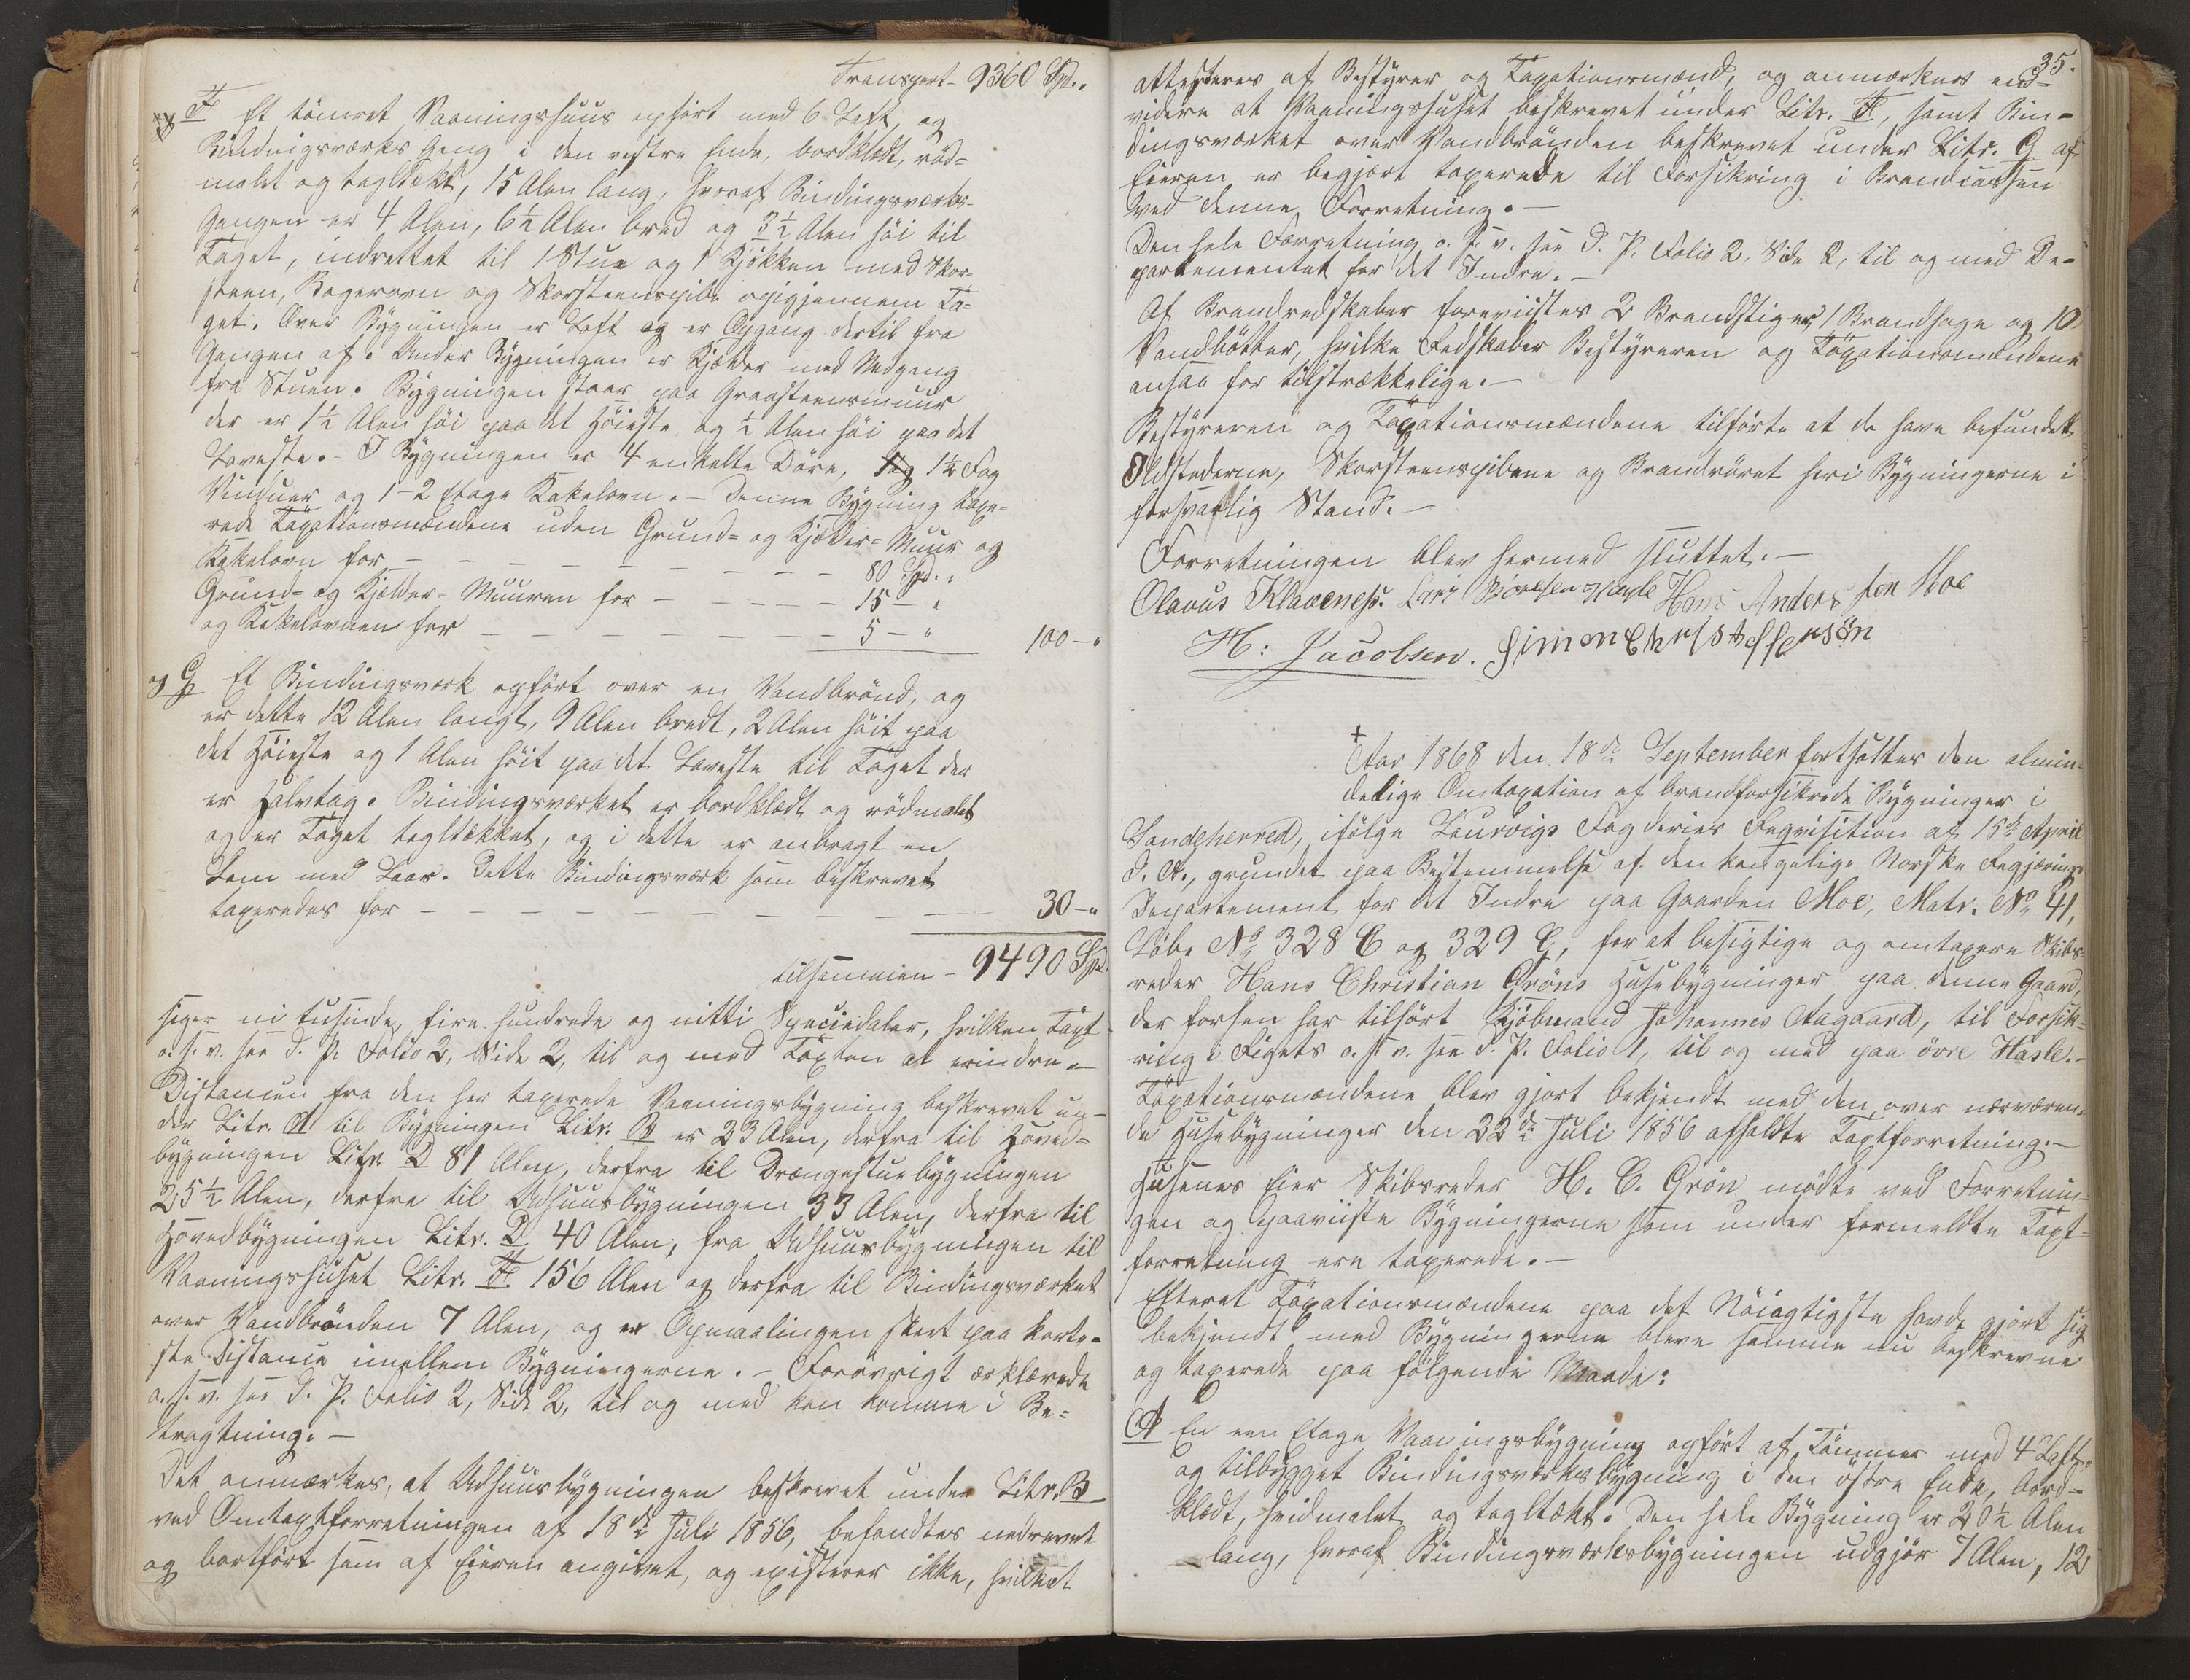 Transport - 9360 Spd. „
F Et tömret Vaaningshuus opfört med 6 Loft, og
Bindingsværks Gang i den vestre Ende, bordklædt, röd-
malet og tegltækt, 15 Alen lang, hvoraf Bindingsværks-
Gangen er 4 Alen, 6½ Alen bred og 3½ Alen höi til
Taget, indrettet til 1 Stue og 1 Kjökken med Skor-
steen, Bagerovn og Skorsteenspibe opigjennem Ta-
get. Over Bygningen er Loft og er Opgang dertil fra
Gangen af. Under Bygningen er Kjelder med Nedgang
fra Stuen. Bygningen staar paa Graasteensmuur
der er 1½ Alen höi paa det Höieste og ½ Alen höi paa det
Laveste. - I Bygningen er 4 enkelte Döre, 1½ Fag
Vinduer og 1 - 2 Etage Kakelovn. - Denne Bygning taxe-
rede Taxationsmændene uden Grund- og Kjelder-Muur og
Kakelovn for - - - - - - - - 80 Spd. „
Grund- og Kjelder-Muuren for - - - - - 15 - „
og Kakelovnen for - - - - - - - 5 - „ 100 - „
og G Et Bindingsværk opfört over en Vandbrönd, og
er dette 12 Alen langt, 9 Alen bredt, 2 Alen höit paa
det Höieste og 1 Alen höit paa det Laveste til Taget der
er Halvtag. Bindingsværket er bordklædt og rödmalet
og er Taget tegltækket, og i dette er anbragt en
Lem med Laas. Dette Bindingsværk som beskrevet
taxeredes for - - - - - - - - - - 30 - „
tilsammen - 9490 Spd.
siger ni tusinde, fire hundrede og nitti Speciedaler, hvilken Taxt
o. s. v. see d. P. Folio 2, Side 2, til og med Taxten at erindre. -
Distancen fra den her taxerede Vaaningsbygning beskrevet un-
der Litr. A til Bygningen Litr. B er 23 Alen, derfra til Hoved-
bygningen Litr. D 81 Alen, derfra til Drengestuebygningen
25½ Alen, derfra til Udhuusbygningen 33 Alen, derfra til
Hovedbygningen Litr. D 40 Alen, fra Udhuusbygningen til
Vaaningshuset Litr. F 156 Alen og derfra til Bindingsværket
over Vandbrönden 7 Alen, og er Opmaalingen skeet paa korte-
ste Distance imellem Bygningerne. - Forövrigt erklærede
o. s. v. see d. P. Folio 2, Side 2, til og med kan komme i Be-
tragtning. -
Det anmærkes, at Udhuusbygningen beskrevet under Litr. B
ved Omtaxtforretningen af 18de Juli 1856, befandtes nedrevet
og bortfört som af Eieren angivet, og existerer ikke, hvilket
35.
attesteres af Bestyrer og Taxationsmænd, og anmærkes end-
videre at Vaaningshuset beskrevet under Litr. F, samt Bin-
dingsværket over Vandbrönden beskrevet under Litr. G af
Eieren er begjært taxerede til Forsikring i Brandcassen
ved denne Forretning. -
Den hele Forretning o. s. v. see d. P. Folio 2, Side 2, til og med De-
partementet for det Indre. -
Af Brandredskaber foreviistes 2 Brandstiger, 1 Brandhage og 10
Vandbötter, hvilke Redskaber Bestyreren og Taxationsmændene
ansaa for tilstrækkelige. -
Bestyreren og Taxationsmændene tilförte at de have befundet
Ildstederne, Skorsteenspiberne og Brandröret heri Bygningerne i
forsvarlig Stand. -
Forretningen blev hermed sluttet. -
Olavus Klavenes. Lars Börresen Hasle Hans Anders sen Moe
H: Jacobsen. Simon Christoffersön
+
Aar 1868 den 18de September fortsattes den almin-
delige Omtaxation af brandforsikrede Bygninger i
Sandeherred, ifölge Laurvigs Fogderies Reqvisition af 15de April
d. A., grundet paa Bestemmelse af den kongelige Norske Regjerings
Departement for det Indre paa Gaarden Moe, Matr. No 41,
Löbe No 328 C og 329 C, for at besigtige og omtaxere Skibs-
reder Hans Christian Gröns Husebygninger paa denne Gaard,
der forhen har tilhört Kjöbmand Johannes Aagaard, til Forsik-
ring i Rigets o. s. v. see d. P. Folio 1, til og med paa övre Hasle. -
Taxationsmændene blev gjort bekjendt med den over nærværen-
de Husebygninger den 22de Juli 1856 afholdte Taxtforretning. -
Husenes Eier Skibsreder H. C. Grön mödte ved Forretnin-
gen og paaviiste Bygningerne som under formeldte Taxt-
forretning ere taxerede. -
Efterat Taxationsmændene paa det Nöiagtigste havde gjort sig
bekjendt med Bygningerne bleve samme nu beskrevne
og taxerede paa fölgende Maade:
A En een Etage Vaaningsbygning opfört af Tömmer med 4 Loft,
og tilbygget Bindingsværksbygning i den östre Ende, bord-
klædt, hvidmalet og tegltækt. Den hele Bygning er 20½ Alen
lang, hvoraf Bindingsværksbygningen udgjör 7 Alen, 12